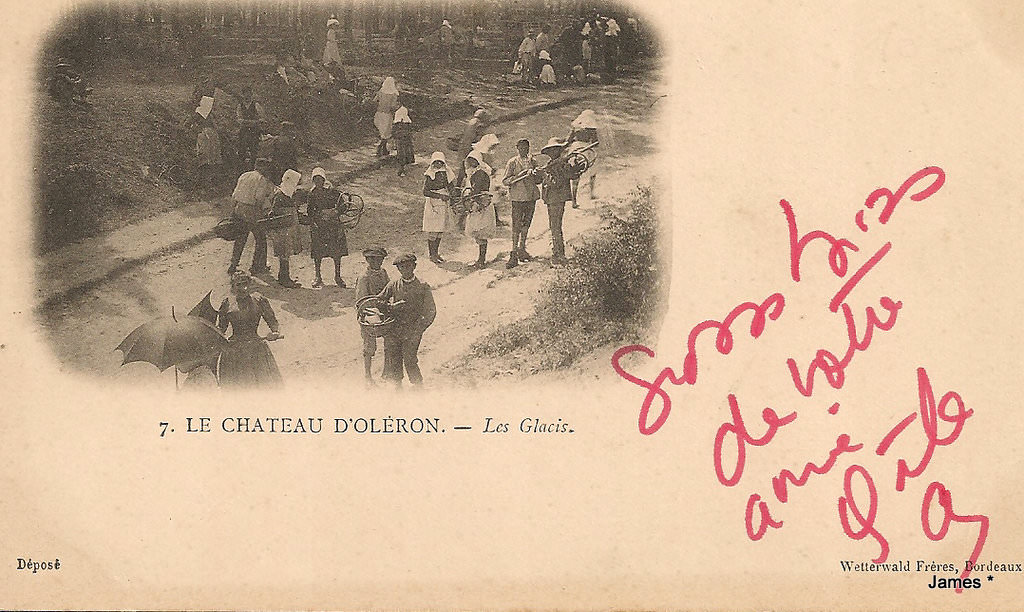 7. LE CHATEAU D'OLÉRON. — Les Glacis.
Gros bis
de votre
amie
Déposé
Wetterwald Fréres, Bordeaux
James *